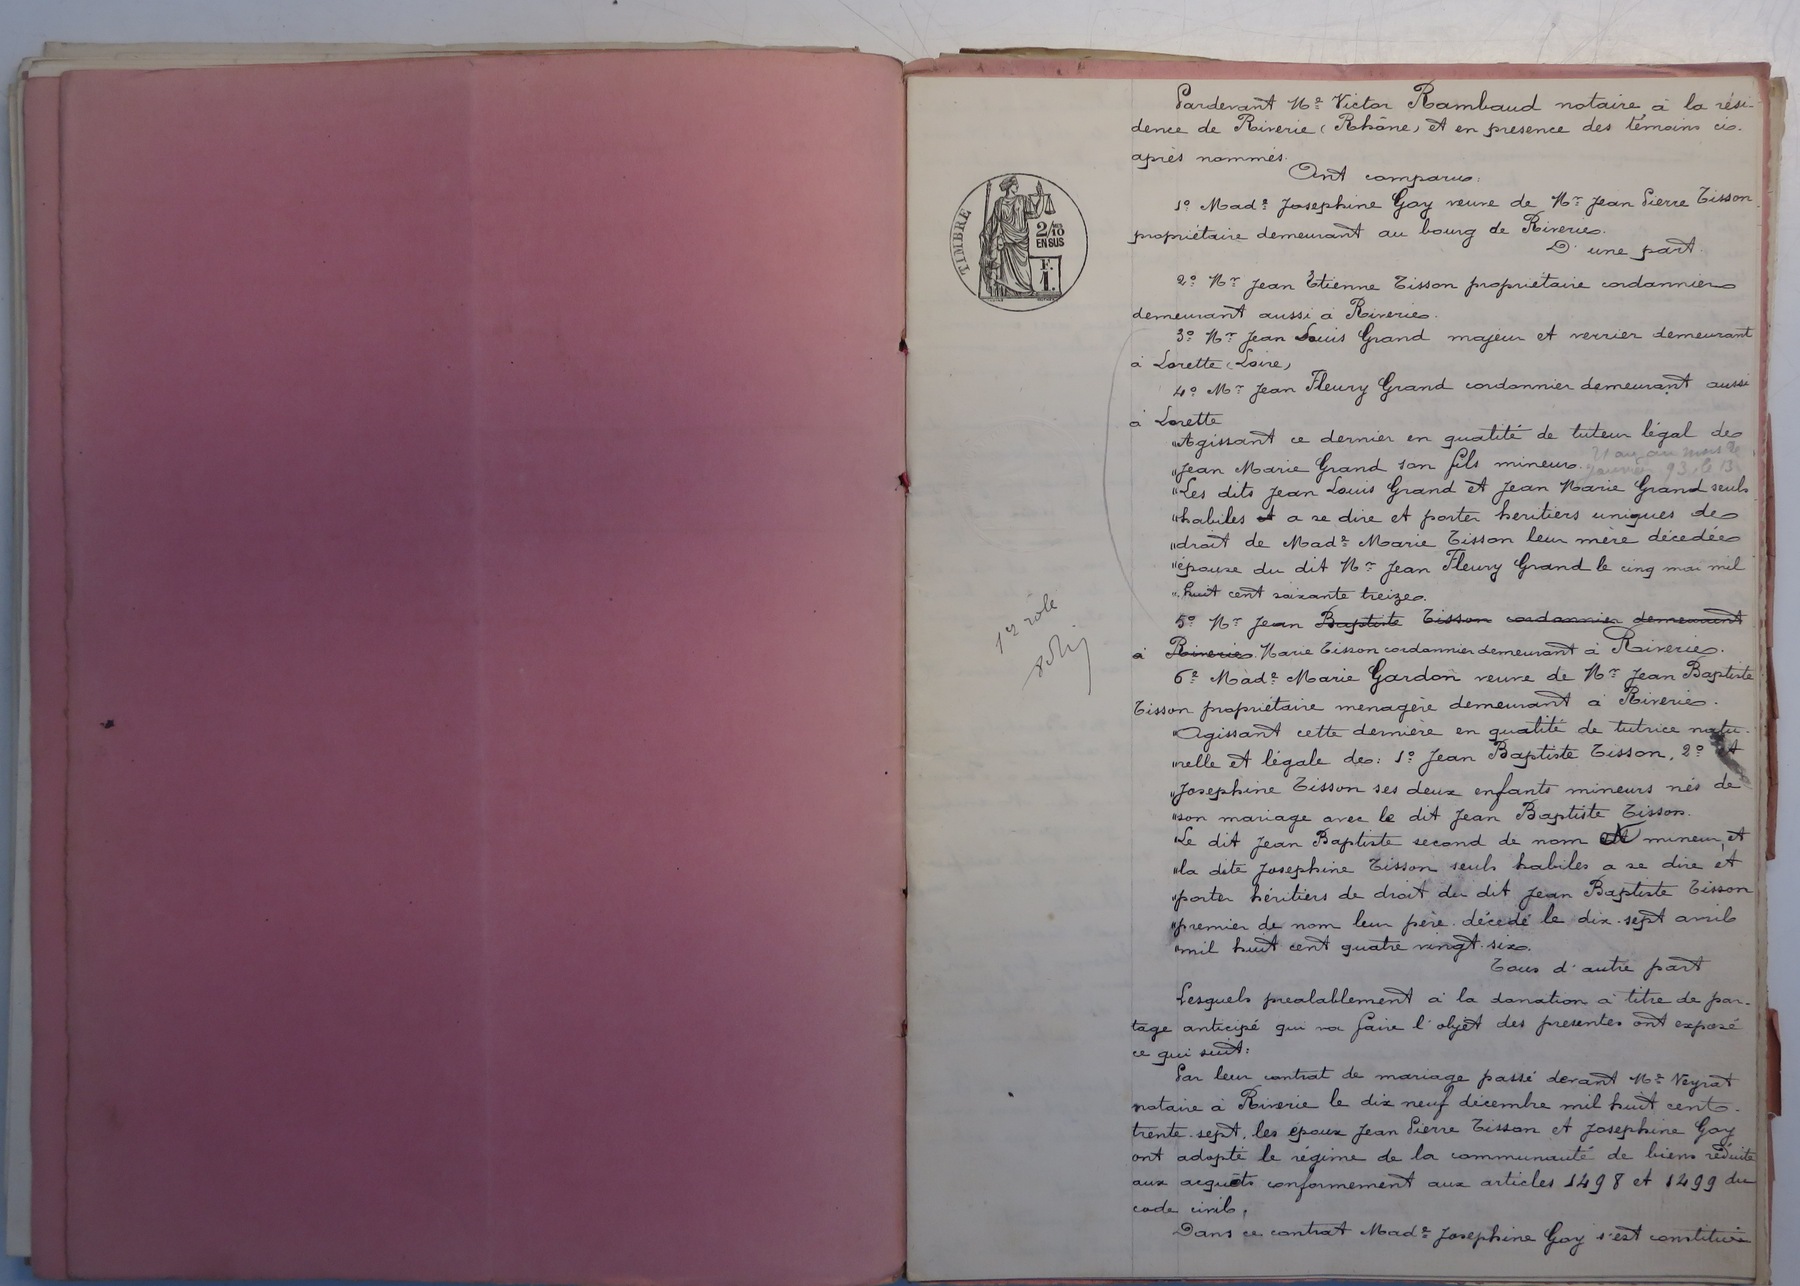 Pardevant Me Victor Rambaud notaire à la rési-
dence de Riverie (Rhône) et en presence des témoins ci-
après nommés.
Ont comparu:
1º Made Josephine Goy veuve de Mr Jean Pierre Tisson
propriétaire demeurant au bourg de Riverie.
D'une part.
TIMBRE
2/10
EN SUS
F.
1.
2º Mr Jean Etienne Tisson propriétaire cordonnier
demeurant aussi à Riverie.
3º Mr Jean Louis Grand majeur et verrier demeurant
à Lorette (Loire)
4º Mr Jean Fleury Grand cordonnier demeurant aussi
à Lorette
"Agissant ce dernier en qualité de tuteur légal de
"Jean Marie Grand son fils mineur. 21 ans au mois de
janvier 93, le 13
"Les dits Jean Louis Grand et Jean Marie Grand seuls
"habiles et a se dire et porter heritiers uniques de
"droit de Made Marie Tisson leur mère décédée
"épouse du dit Mr Jean Fleury Grand le cinq mai mil
"huit cent soixante treize.
1er rôle
5º Mr Jean Baptiste Tisson cordonnier demeurant
à Riverie. Marie Tisson cordonnier demeurant à Riverie.
6º Made Marie Gardon veuve de Mr Jean Baptiste
Tisson propriétaire menagère demeurant à Riverie.
"Agissant cette dernière en qualité de tutrice natu-
"relle et légale de: 1º Jean Baptiste Tisson, 2º et
"Josephine Tisson ses deux enfants mineurs nés de
"son mariage avec le dit Jean Baptiste Tisson.
"Le dit Jean Baptiste second de nom mineur, et
"la dite Josephine Tisson seuls habiles a se dire et
"porter héritiers de droit du dit Jean Baptiste Tisson
"premier de nom leur père décedé le dix-sept avril
"mil huit cent quatre vingt-six.
Tous d'autre part
Lesquels prealablement à la donation à titre de par-
tage anticipé qui va faire l'objet des presentes ont exposé
ce qui suit:
Par leur contrat de mariage passé devant Me Veyrat
notaire à Riverie le dix neuf décembre mil huit cent-
trente-sept, les époux Jean Pierre Tisson et Josephine Goy
ont adopté le régime de la communauté de biens réduite
aux acquêts conformement aux articles 1498 et 1499 du
code civil.
Dans ce contrat Made Josephine Goy s'est constituée